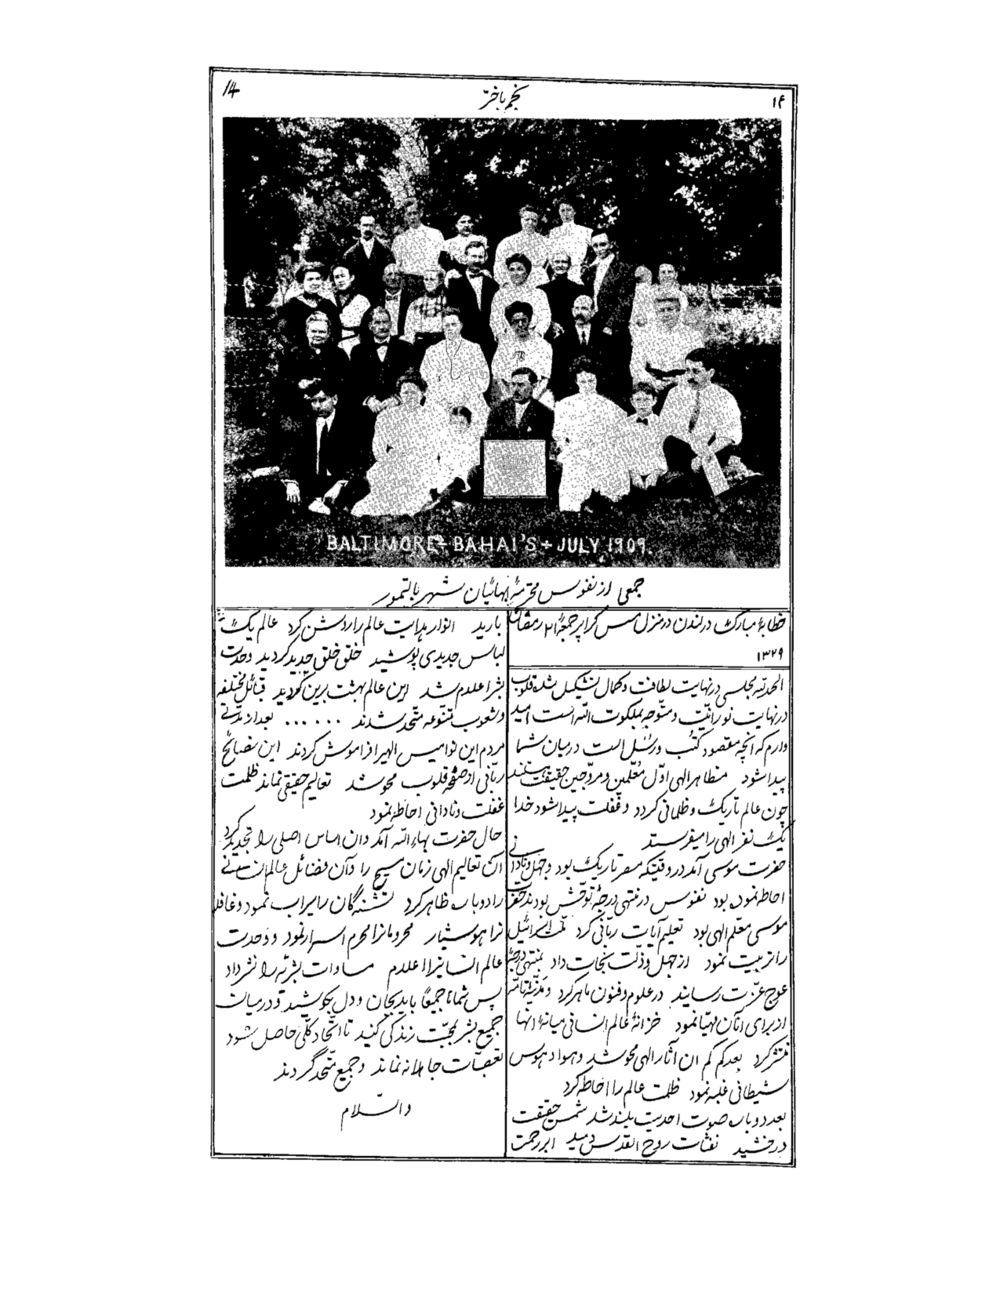 14
نجم باختر
۱۴
BALTIMORE BAHAI'S - JULY 1909.
جمعی از نفوس محترمهٔ بهائیان شهر بالتیمور
خطابهٔ مبارک در لندن در منزل مس کراپر جمعهٔ ۲۱ رمضان
۱۳۲۹
الحمد لله مجلسی در نهایت لطافت و کمال تشکیل شده قلوب
در نهایت نورانیت و متوجه بملکوت الله است امید
وارم که آنچه مقصود کتب و رسل است در میان شما
پیدا شود مظاهر الهی اول معلمین و مروجین حقیقت هستند
چون عالم تاریک و ظلمانی گردد و غفلت پیدا شود خدا
یک نفر الهی را میفرستد
حضرت موسی آمد در وقتیکه مصر تاریک بود و جهل و نادانی
احاطه نموده بود نفوس در منتهی درجهٔ توحش بودند حضرت
موسی معلم الهی بود تعلیم آیات ربانی کرد ملت اسرائیل
را تربیت نمود از جهل و ذلت نجات داد بمنتهی درجهٔ
عوج عزت رسانید در علوم و فنون ماهر کرد و مدنیت تامه
از برای آنان مهیا نمود خزانهٔ عالم انسانی میانهٔ آنها
منتشر کرد بعد کم کم آن آثار الهی محو شد و هوا و هوس
شیطانی غلبه نمود ظلمت عالم را احاطه کرد
بعد دوباره صوت احدیت بلند شد شمس حقیقت
درخشید نفثات روح القدس دمید ابر رحمت
بارید انوار هدایت عالم را روشن کرد عالم یک
لباس جدیدی پوشید خلق خلق جدید گردید وحدت
بشر اعلام شد این عالم بهشت برین گردید قبائل مختلفه
و شعوب متنوعه متحد شدند ...... بعد از مدتی
مردم این نوامیس الهیرا فراموش کردند این نصائح
ربانی از صفحهٔ قلوب محو شد تعالیم حقیقی نماند ظلمت
غفلت و نادانی احاطه نمود
حال حضرت بهاءالله آمد و آن اساس اصلی را تجدید کرد
آن تعالیم الهی زمان مسیح را و آن فضائل عالم انسانی
را دوباره ظاهر کرد تشنه‌گان را سیراب نمود و غافلا
نرا هوشیار محرومانرا محرم اسرار نمود و وحدت
عالم انسانیرا اعلام مساوات بشریه را نشر داد
پس شماها جمیعًا باید بجان و دل بکوشید و در میان
جمیع بشر بمحبت زندگی کنید تا اتحاد کلی حاصل شود
تعصبات جاهلانه نماند و جمیع متحد گردند
والسلام